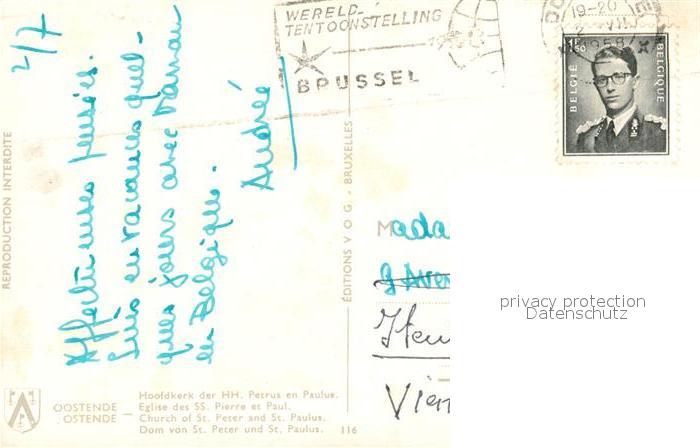 2/7
Affectueuses pensées.
Suis en vacances quel-
ques jours avec Maman
en Belgique.
André
WERELD-
TENTOONSTELLING
1958
BRUSSEL
19-20
1958
1F50
BELGIE
BELGIQUE
REPRODUCTION INTERDITE
ÉDITIONS V O G - BRUXELLES
Mada
9 Aven
Vien
privacy protection
Datenschutz
OOSTENDE
OSTENDE
Hoofdkerk der HH. Petrus en Paulus.
Eglise des SS. Pierre et Paul.
Church of St. Peter and St. Paulus.
Dom von St. Peter und St. Paulus.
116